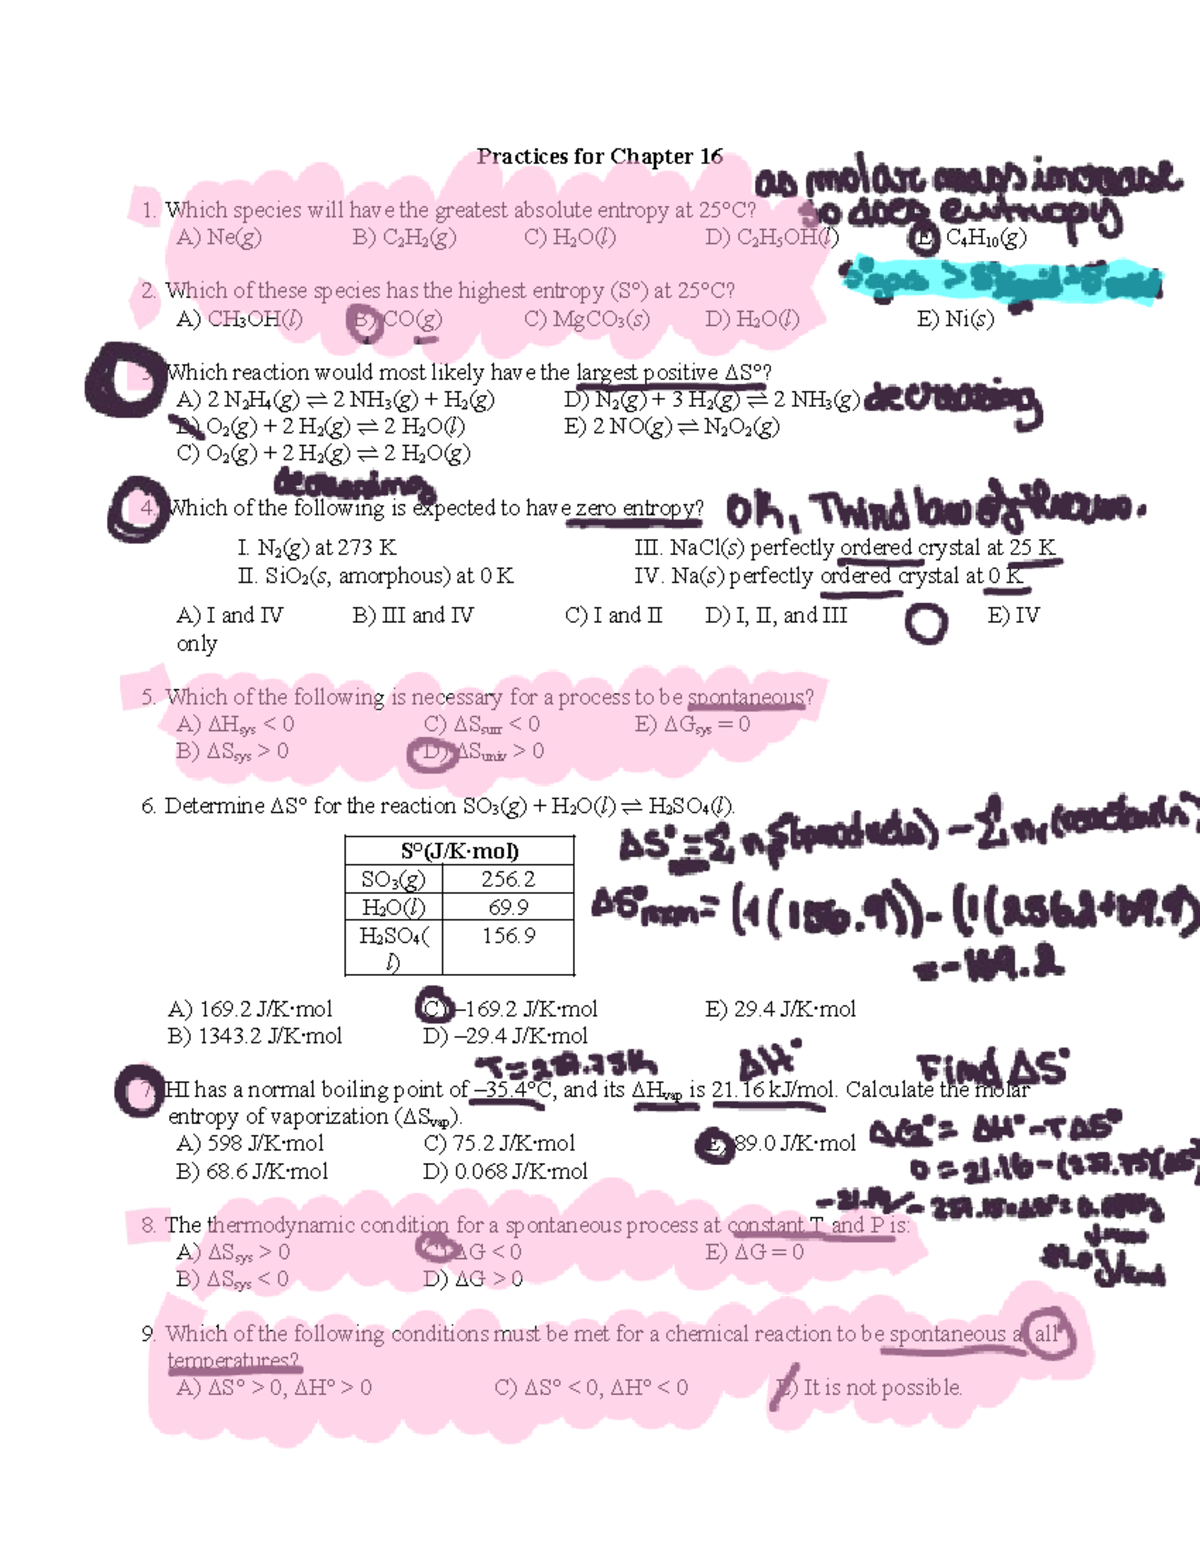 Practices for Chapter 16
as molar mass increase
so does entropy
1. Which species will have the greatest absolute entropy at 25°C?
A) Ne(g) B) C₂H₂(g) C) H₂O(l) D) C₂H₅OH(l) E) C₄H₁₀(g)
2. Which of these species has the highest entropy (S°) at 25°C?
A) CH₃OH(l) B) CO(g) C) MgCO₃(s) D) H₂O(l) E) Ni(s)
3. Which reaction would most likely have the largest positive ΔS°?
A) 2 N₂H₄(g) ⇌ 2 NH₃(g) + H₂(g) D) N₂(g) + 3 H₂(g) ⇌ 2 NH₃(g) decreasing
B) O₂(g) + 2 H₂(g) ⇌ 2 H₂O(l) E) 2 NO(g) ⇌ N₂O₂(g)
C) O₂(g) + 2 H₂(g) ⇌ 2 H₂O(g)
decreasing
4. Which of the following is expected to have zero entropy? OK, Third law of Thermo.
I. N₂(g) at 273 K III. NaCl(s) perfectly ordered crystal at 25 K
II. SiO₂(s, amorphous) at 0 K IV. Na(s) perfectly ordered crystal at 0 K
A) I and IV B) III and IV C) I and II D) I, II, and III E) IV
only
5. Which of the following is necessary for a process to be spontaneous?
A) ΔHsys < 0 C) ΔSsurr < 0 E) ΔGsys = 0
B) ΔSsys > 0 D) ΔSuniv > 0
6. Determine ΔS° for the reaction SO₃(g) + H₂O(l) ⇌ H₂SO₄(l).
S°(J/K·mol)
SO₃(g) 256.2
H₂O(l) 69.9
H₂SO₄( 156.9
l)
ΔS° = Σ (products) − Σ (reactants)
ΔS°rxn = (1(156.9)) − (1(256.2+69.9)
= −169.2
A) 169.2 J/K·mol C) –169.2 J/K·mol E) 29.4 J/K·mol
B) 1343.2 J/K·mol D) –29.4 J/K·mol
T = 237.75K ΔH° Find ΔS°
7. HI has a normal boiling point of –35.4°C, and its ΔHvap is 21.16 kJ/mol. Calculate the molar
entropy of vaporization (ΔSvap).
A) 598 J/K·mol C) 75.2 J/K·mol E) 89.0 J/K·mol
B) 68.6 J/K·mol D) 0.068 J/K·mol
ΔG° = ΔH° − TΔS°
0 = 21.16 − (237.75)(ΔS°
8. The thermodynamic condition for a spontaneous process at constant T and P is:
A) ΔSsys > 0 ΔG < 0 E) ΔG = 0
B) ΔSsys < 0 D) ΔG > 0
9. Which of the following conditions must be met for a chemical reaction to be spontaneous a all
temperatures?
A) ΔS° > 0, ΔH° > 0 C) ΔS° < 0, ΔH° < 0 E) It is not possible.